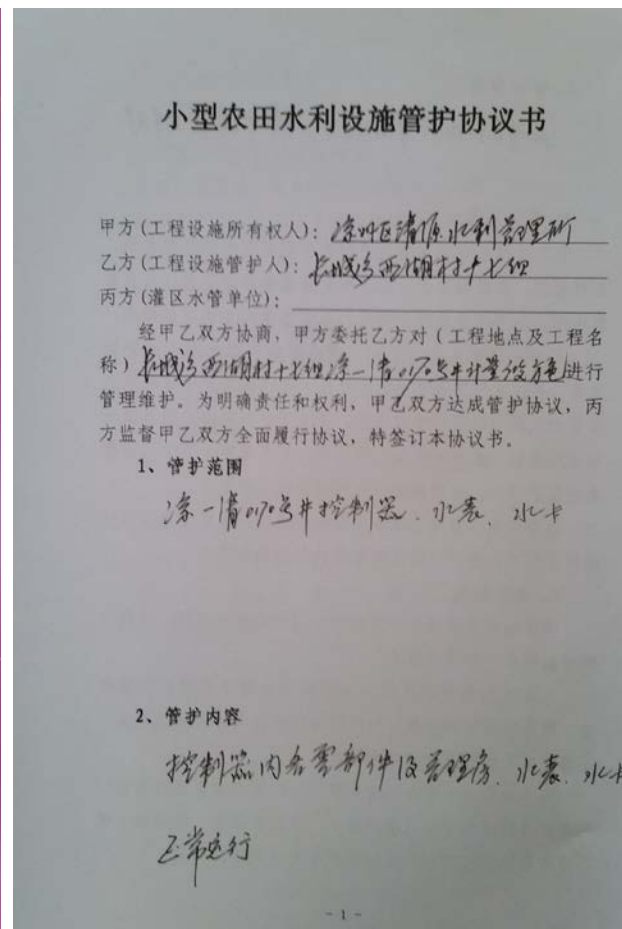 小型农田水利设施管护协议书
甲方(工程设施所有权人)：凉州区清源水利管理所
乙方(工程设施管护人)：长城乡西湖村十七组
丙方(灌区水管单位)：
经甲乙双方协商，甲方委托乙方对（工程地点及工程名
称）长城乡西湖村十七组凉一清0170号井计量设施进行
管理维护。为明确责任和权利，甲乙双方达成管护协议，丙
方监督甲乙双方全面履行协议，特签订本协议书。
1、管护范围
凉一清0170号井控制器、水表、水卡
2、管护内容
控制器内各零部件及管理房、水表、水卡
正常运行
- 1 -